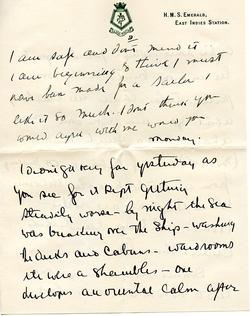 H.M.S. EMERALD,
EAST INDIES STATION.
2
I am safe and don't mind it
I am beginning to think I must
have been made for a sailor I
like it so much. I don't think you
would agree with me would you
Monday.
I didn't get very far yesterday as
you see for it kept getting
steadily worse - by night the sea
was breaking over the ship - washing
the decks and cabins - wardrooms
etc were a shambles - one
develops an oriental calm after